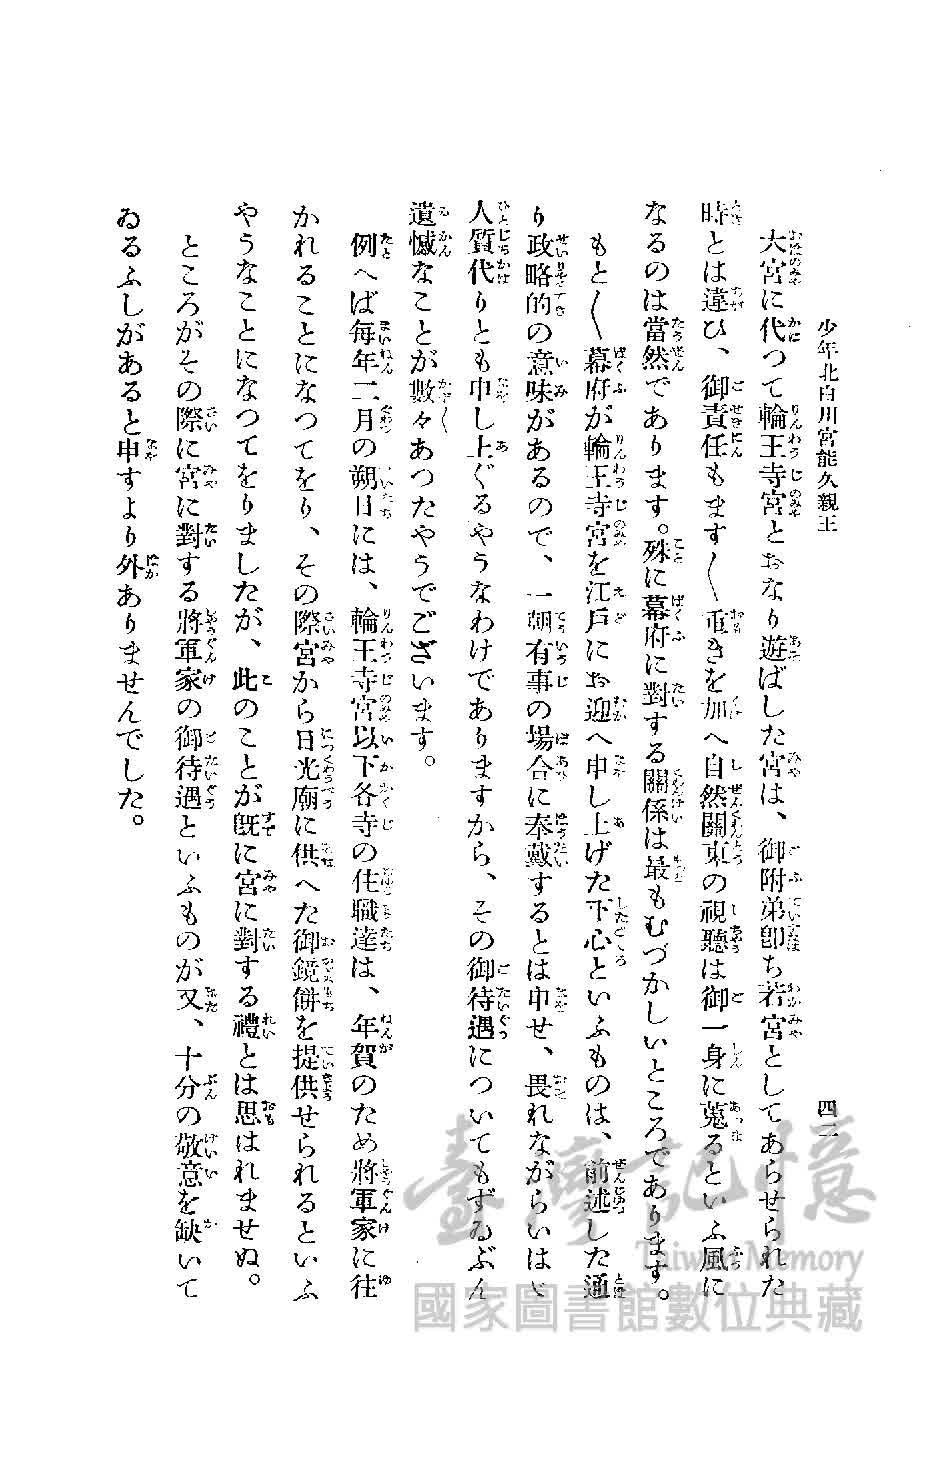 少年北白川宮能久親王
四二
大宮に代つて輪王寺宮とおなり遊ばした宮は、御附弟卽ち若宮としてあらせられた
時とは違ひ、御責任もます〱重きを加へ自然關東の視聽は御一身に蒐るといふ風に
なるのは當然であります。殊に幕府に對する關係は最もむづかしいところであります。
もと〱幕府が輪王寺宮を江戸にお迎へ申し上げた下心といふものは、前述した通
り政略的の意味があるので、一朝有事の場合に奉戴するとは申せ、畏れながらいはゞ
人質代りとも申し上ぐるやうなわけでありますから、その御待遇についてもずゐぶん
遺憾なことが數々あつたやうでございます。
例へば每年二月の朔日には、輪王寺宮以下各寺の住職達は、年賀のため將軍家に往
かれることになつてをり、その際宮から日光廟に供へた御鏡餅を提供せられるといふ
やうなことになつてをりましたが、此のことが旣に宮に對する禮とは思はれませぬ。
ところがその際に宮に對する將軍家の御待遇といふものが又、十分の敬意を缺いて
ゐるふしがあると申すより外ありませんでした。
臺灣記憶
Taiwan Memory
國家圖書館數位典藏